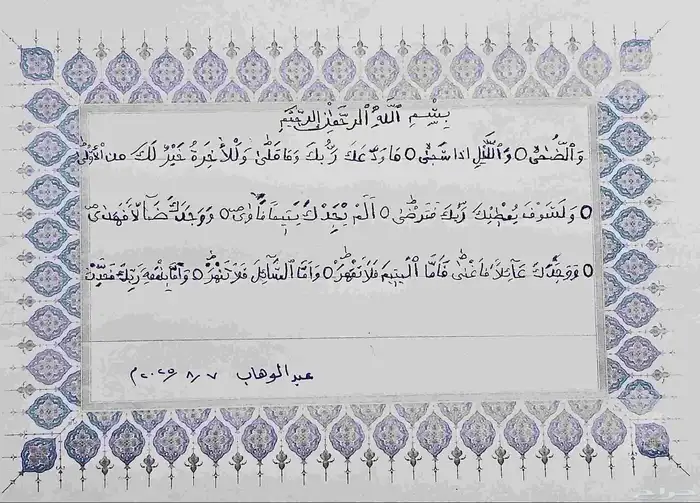 بِسْمِ اللَّهِ الرَّحْمَٰنِ الرَّحِيمِ
وَالضُّحَىٰ ٥ وَاللَّيْلِ اذا سَجَىٰ ٥ مَا وَدَّعَكَ رَبُّكَ وَمَا قَلَىٰ وَلَلْأَخِرَةُ خَيْرٌ لَكَ مِنَ الْأُولَىٰ
٥ وَلَسَوْفَ يُعْطِيكَ رَبُّكَ فَتَرْضَىٰ ٥ أَلَمْ يَجِدْكَ يَتِيمًا فَآوَىٰ ٥ وَوَجَدَكَ ضَآلًّا فَهَدَىٰ
٥ وَوَجَدَكَ عَآئِلًا فَأَغْنَىٰ فَأَمَّا الْيَتِيمَ فَلَا تَقْهَرْ ٥ وَأَمَّا السَّآئِلَ فَلَا تَنْهَرْ ٥ وَأَمَّا بِنِعْمَةِ رَبِّكَ فَحَدِّثْ
عبد الوهاب ٢٠٢٥/٨/٧م